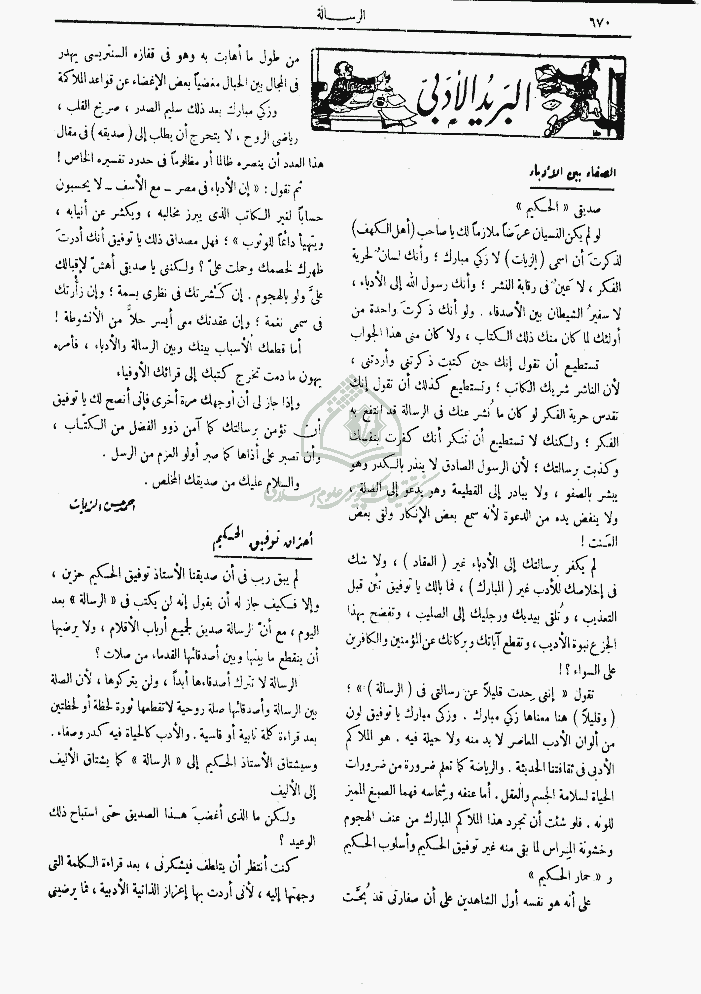 ٦٧٠
الرسالة
البريد الأدبي
الصفاء بين الأدباء
صديقي « الحكيم »
لو لم يكن النسيان عرَضاً ملازماً لك يا صاحب (أهل الكهف)
لذكرتَ أن اسمى (الزيات) لا زكي مبارك ؛ وأنك لسانٌ لحرية
الفكر ، لا عَينٌ في رقابة النشر ؛ وأنك رسول الله إلى الأدباء ،
لا سفيرُ الشيطان بين الأصدقاء . ولو أنك ذكرتَ واحدة من
أولئك لما كان منك ذلك الكتاب ، ولا كان منى هذا الجواب
تستطيع أن تقول إنك حين كتبت ذكرتنى وأردتنى ،
لأن الناشر شريك الكاتب ؛ وتستطيع كذلك أن تقول إنك
تقدس حرية الفكر لو كان ما نُشر عنك في الرسالة قد انتفع به
الفكر ؛ ولكنك لا تستطيع أن تنكر أنك كفرت بنفسك
وكذبت برسالتك ؛ لأن الرسول الصادق لا ينذر بالكدر وهو
يبشر بالصفو ، ولا يبادر إلى القطيعة وهو يدعو إلى الصلة ،
ولا ينفض يده من الدعوة لأنه سمع بعض الإنكار ولقى بعض
العنت !
لم يكفر برسالتك إلى الأدباء غير (العقاد) ، ولا شك
في إخلاصك للأدب غير (المبارك) ، فما بالك يا توفيق تئن قبل
التعذيب ، وتُلقى بيديك ورجليك إلى الصليب ، وتفضح بهذا
الجزع نبوة الأديب ، وتقطع آياتك وبركاتك عن المؤمنين والكافرين
على السواء ؟ !
تقول « إننى حِدت قليلاً عن رسالتى في (الرسالة) » ؛
(وقليلاً) هنا معناها زكي مبارك . وزكي مبارك يا توفيق لون
من ألوان الأدب المعاصر لا بد منه ولا حيلة فيه . هو الملاكم
الأدبى في ثقافتنا الحديثة . والرياضة كما تعلم ضرورة من ضرورات
الحياة لسلامة الجسم والعقل . أما عنفه وشماسه فهما الصبغ المميز
للونه . فلو شئت أن تجرد هذا الملاكم المبارك من عنف الهجوم
وخشونة المِراس لما بقى منه غير توفيق الحكيم وأسلوب الحكيم
و « حمار الحكيم »
على أنه هو نفسه أول الشاهدين على أن صفارتى قد بُحَّت
من طول ما أهابت به وهو في قفازه السنتريسى يهدر
في المجال بين الحبال مغضياً بعض الإغضاء عن قواعد الملاكمة
وزكي مبارك بعد ذلك سليم الصدر ، صريح القلب ،
رياضى الروح ، لا يتحرج أن يطلب إلى (صديقه) في مقال
هذا العدد أن ينصره ظالماً أو مظلوماً في حدود تفسيره الخاص !
ثم تقول : « إن الأدباء في مصر ــ مع الأسف ــ لا يحسبون
حساباً لغير الكاتب الذى يبرز مخالبه ، ويكشر عن أنيابه ،
ويتهيأ دائماً للوثوب » ؛ فهل مصداق ذلك يا توفيق أنك أدرتَ
ظهرك لخصمك وحملت علىّ ؟ ولكننى يا صديقى أهشّ لإقبالك
علىَّ ولو بالهجوم . إن كَشْرتك في نظرى بسمة ؛ وإن زأرتك
في سمعى نغمة ؛ وإن عقدتك معى أيسر حلاًّ من الأنشوطة !
أما قطعك الأسباب بينك وبين الرسالة والأدباء ، فأمره
يهون ما دمت تخرج كتبك إلى قرائك الأوفياء
وإذا جاز لى أن أوجهك مرة أخرى فإنى أنصح لك يا توفيق
أن تؤمن برسالتك كما آمن ذوو الفضل من الكتّاب ،
وأن تصبر على أذاها كما صبر أولو العزم من الرسل .
والسلام عليك من صديقك المخلص .
احمد حسن الزيات
أحزان توفيق الحكيم
لم يبق ريب في أن صديقنا الأستاذ توفيق الحكيم حزين ،
وإلا فكيف جاز له أن يقول إنه لن يكتب في « الرسالة » بعد
اليوم ، مع أنّ الرسالة صديق لجميع أرباب الأقلام ، ولا يرضيها
أن ينقطع ما بينها وبين أصدقائها القدماء من صلات ؟
الرسالة لا تترك أصدقاءها أبداً ، ولن يتركوها ، لأن الصلة
بين الرسالة وأصدقائها صلة روحية لا تقطعها ثورة لحظة أو لحظتين
بعد قراءة كلمة نابية أو قاسية . والأدب كالحياة فيه كدر وصفاء .
وسيشتاق الأستاذ الحكيم إلى « الرسالة » كما يشتاق الأليف
إلى الأليف
ولكن ما الذى أغضبَ هــذا الصديق حتى استباح ذلك
الوعيد ؟
كنت أنتظر أن يتلطف فيشكرنى ، بعد قراءة الكلمة التى
وجهتها إليه ، لأنى أردت بها إعزاز الذاتية الأدبية ، فما يرضينى